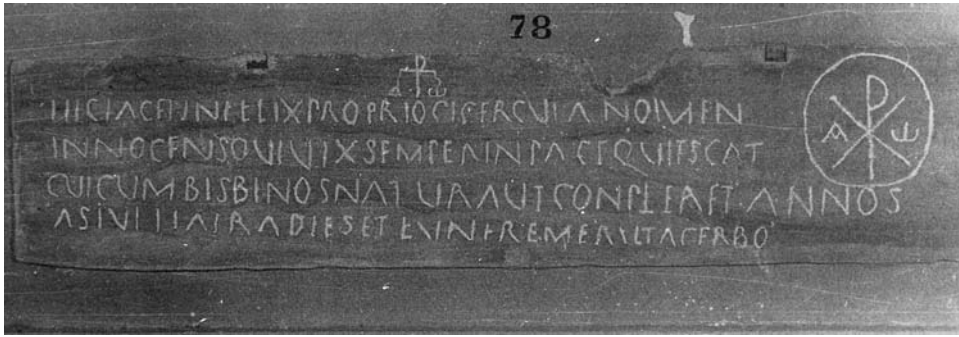 78
HIC IACET INFELIX PROPRIO CICERCVLA NOMEN
INNOCENS QVI VIX SEMPER IN PACE QVIESCAT
CVI CVM BIS BINOS NATVRA VT CONPLERET ANNOS
ABSTVLIT ATRA DIES ET FVNERE MERSIT ACERBO